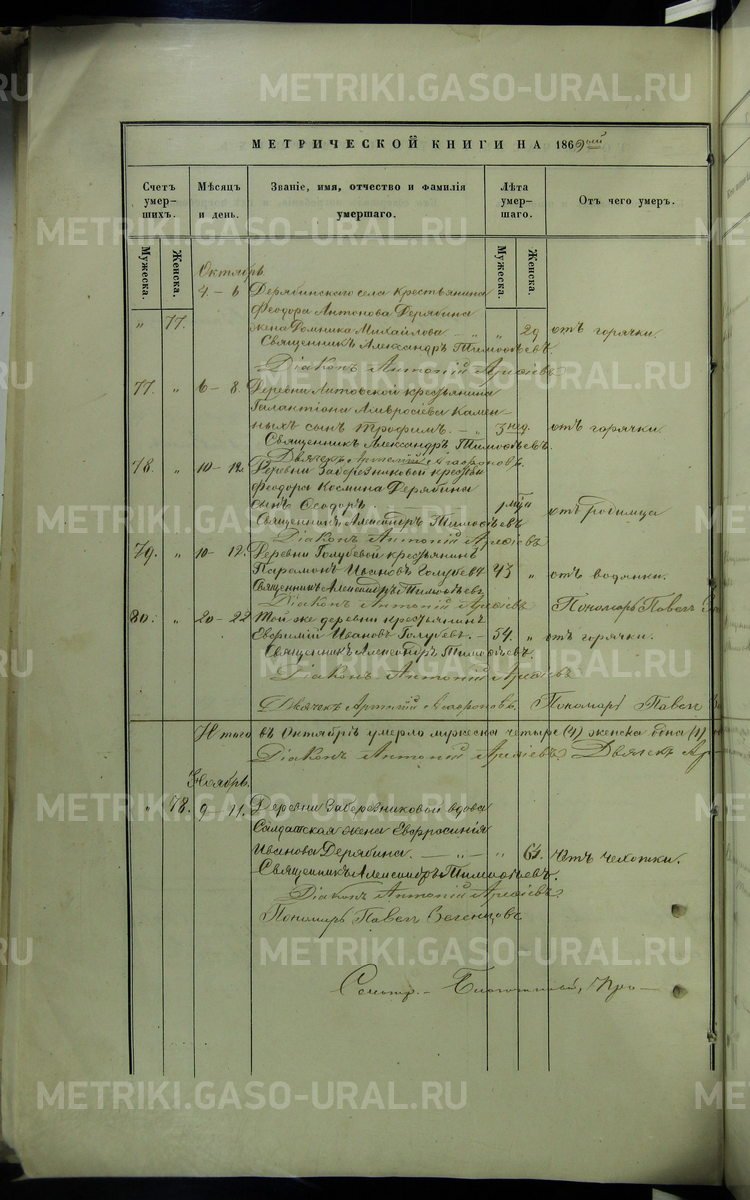 METRIKI.GASO-URAL.RU
МЕТРИЧЕСКОЙ КНИГИ НА 1869ый
Счетъ умершихъ.
Мужеска.
Женска.
Мѣсяцъ и день.
Званіе, имя, отчество и фамилія умершаго.
Лѣта умершаго.
Мужеска.
Женска.
Отъ чего умеръ.
Октябрь.
4 – 6 Дерябинскаго села крестьянина
Феодора Антонова Дерябина
" 77. жена Домника Михайлова – " " 29 отъ горячки.
Священникъ Александръ Тимофѣевъ.
Діаконъ Антоній
77 " 6 – 8. Деревни Литовской крестьянина
Галактіона Амвросіева Камен-
ныхъ сынъ Трофимъ. – " 3 нед. отъ горячки.
Священникъ Александръ Тимофѣевъ.
Дьячекъ Агафоновъ.
78. " 10 – 12. Деревни Заберезниковой
Феодора Космина Дерябина
сынъ Феодоръ. отъ родимца
Священникъ Александръ Тимофѣевъ
Діаконъ Антоній
79. " 10 – 12. Деревни Голубевой крестьянинъ
Парамонъ Ивановъ Голубевъ 43 " отъ водянки.
Священникъ Александръ Тимофѣевъ
Діаконъ Антоній Пономарь Павелъ
80. " 20 – 22 Той же деревни крестьянинъ
Ефримій Ивановъ Голубевъ. – 54. " отъ горячки.
Священникъ Александръ Тимофѣевъ.
Діаконъ Антоній
Дьячекъ Агафоновъ. Пономарь Павелъ
Итого въ Октябрѣ умерло мужеска четыре (4) женска одна (1)
Діаконъ Антоній Дьячекъ
Ноябрь.
" 78. 9 – 11. Деревни Заберезниковой вдова
Салдатская жена Евфросинія
Иванова Дерябина. – " – " 64. Отъ чехотки.
Священникъ Александръ Тимофѣевъ.
Діаконъ Антоній
Пономарь Павелъ